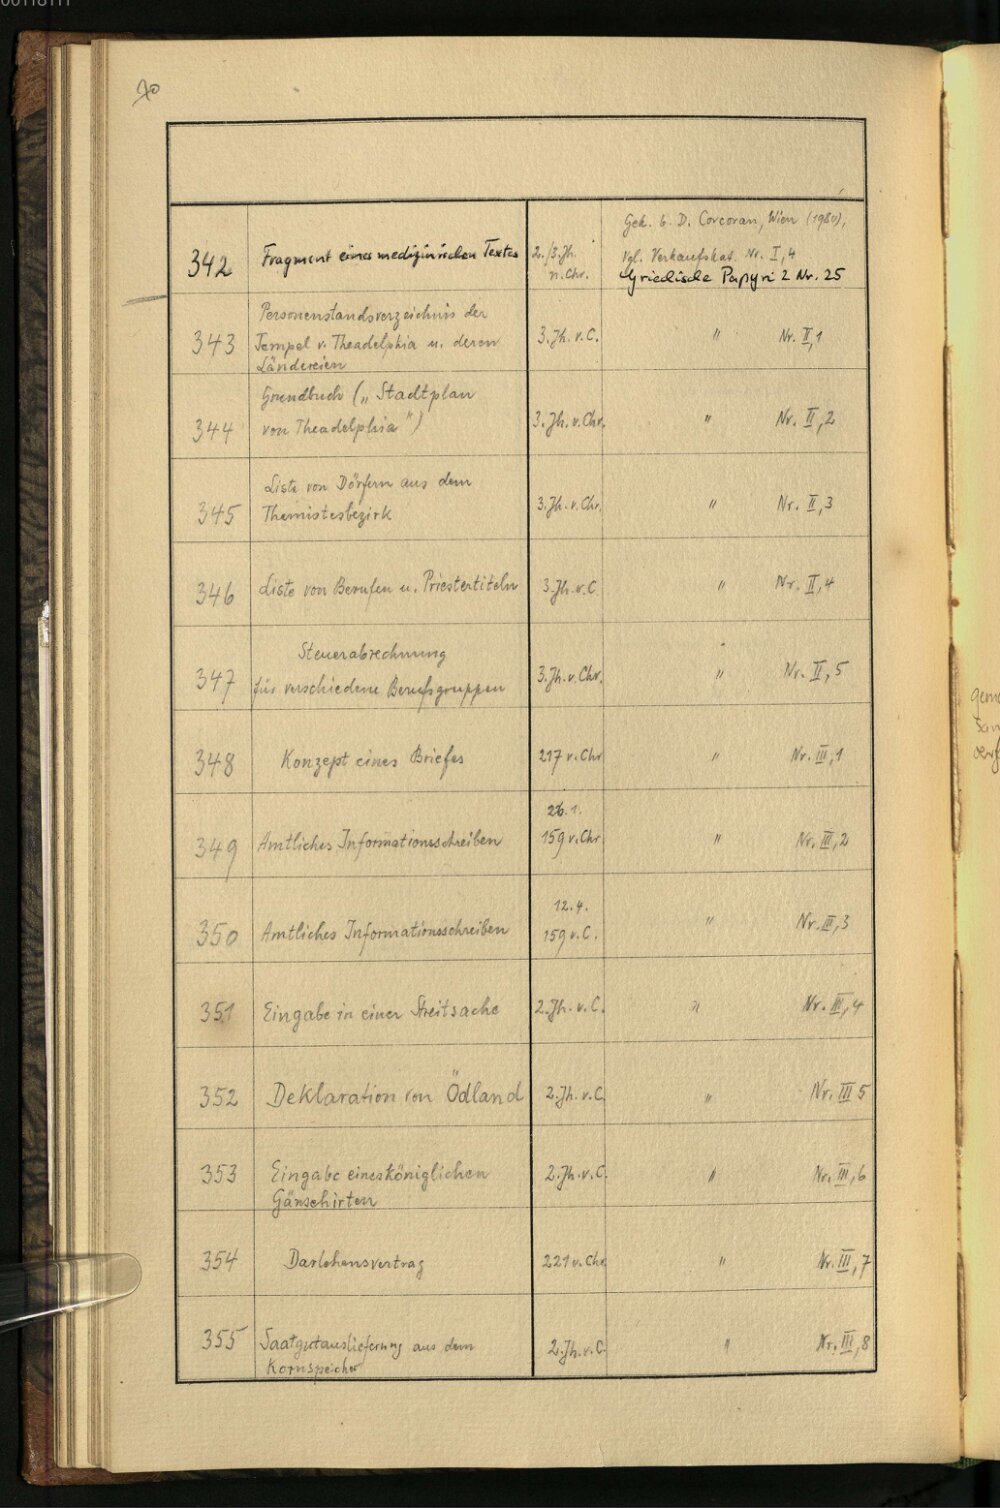 342 Fragment eines medizinischen Textes 2./3. Jh. n. Chr. Gek. b. D. Corcoran, Wien (1980),
vgl. Verkaufskat. Nr. I, 4
Griechische Papyri 2 Nr. 25
Personenstandsverzeichnis der
343 Tempel v. Theadelphia u. deren 3. Jh. v. C. " Nr. II, 1
Ländereien
Grundbuch („Stadtplan
344 von Theadelphia") 3. Jh. v. Chr. " Nr. II, 2
Liste von Dörfern aus dem
345 Themistesbezirk 3. Jh. v. Chr. " Nr. II, 3
346 Liste von Berufen u. Priestertiteln 3. Jh. v. C. " Nr. II, 4
Steuerabrechnung
347 für verschiedene Berufsgruppen 3. Jh. v. Chr. " Nr. II, 5
348 Konzept eines Briefes 217 v. Chr " Nr. III, 1
26. 1.
349 Amtliches Informationsschreiben 159 v. Chr " Nr. III, 2
12. 4.
350 Amtliches Informationsschreiben 159 v. C. " Nr. III, 3
351 Eingabe in einer Streitsache 2. Jh. v. C. " Nr. III, 4
352 Deklaration von Ödland 2. Jh. v. C. " Nr. III 5
353 Eingabe eines königlichen 2. Jh. v. C. " Nr. III, 6
Gänsehirten
354 Darlehensvertrag 221 v. Chr " Nr. III, 7
355 Saatgutauslieferung aus dem 2. Jh. v. C. " Nr. III, 8
Kornspeicher